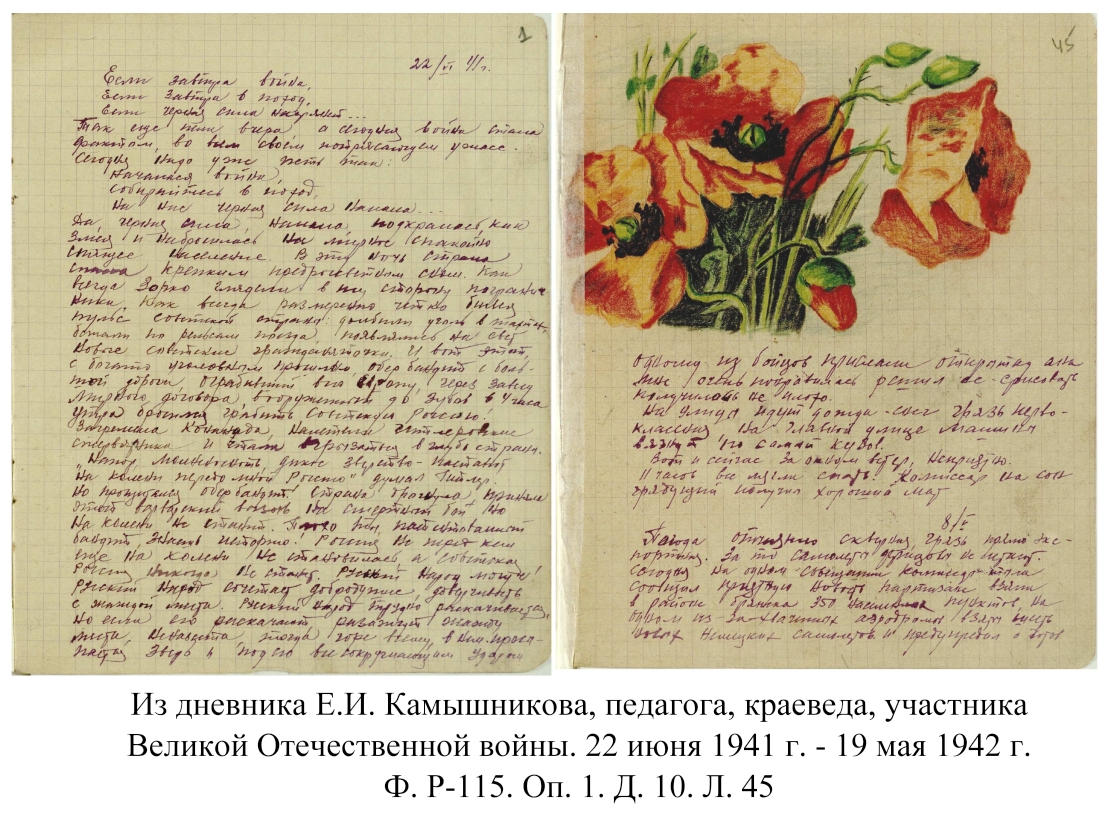 1
22/VI 41г.
Если завтра война,
Если завтра в поход,
Если черная сила нагрянет...
Так еще пели вчера, а сегодня война стала
фактом, во всем своем потрясающем ужасе.
Сегодня надо уже петь так:
Началася война,
Собирайтесь в поход,
На нас черная сила напала...
Да, черная сила, напала, подкралась, как
змея и набросилась на мирное спокойно
спящее население. В эту ночь страна
спала крепким предрассветным сном. Как
всегда зорко глядели в ту сторону погранич-
ники. Как всегда размеренно четко бился
пульс советской страны: долбили уголь в шахтах,
по рельсам поезда, появлялись на свет
новые советские граждане. И вот этот
с богатым уголовным прошлым, обер бандит с боль-
шой дороги, ограбивший всю Европу, через завесу
мирного договора, вооруженный до зубов в 4 часа
утра бросился грабить Советскую Россию!
Загремела канонада, налетели гитлеровские
стервятники и стали вгрызаться в глубь страны.
„Напор, внезапность, дикое зверство - поставят
на колени передо мной Россию" думал Гитлер.
Но просчитался обер бандит! Страна приняла
этот вызов на смертный бой но
на колени не станет. Плохо ты,
бандит, знаешь историю! Россия не перед кем
еще на колени не становилась, а советская
Россия никогда не станет. Русский народ могуч!
Русский народ сочетает добродушие,
с жаждой мести. Русский народ трудно раскачивается,
Но если его раскачают разожгут жажду
мести, тогда горе всему, в нем
зверь и под его всесокрушающим ударом
45
Одному из бойцов прислали открытку она
мне очень понравилась решил ее срисовать
получилось не плохо.
На улице идут дожди - снег грязь перво-
классная на главной улице машины
вязнут по самый кузов!
Вот и сейчас за окном ветер,
11 часов вы шли спать! Комиссар на сон
грядущий получил хороший мат
8/V
Погода отчаянно скверная, грязь прямо экс-
портная. За то самолеты фрицовы не летают.
Сегодня на одном совещании комиссар
сообщил приятную новость партизаны взяли
в районе Брянска 350 населенных пунктов, на
одном из захваченных аэродромов взяли шесть
новых немецких самолетов и
Из дневника Е.И. Камышникова, педагога, краеведа, участника
Великой Отечественной войны. 22 июня 1941 г. - 19 мая 1942 г.
Ф. Р-115. Оп. 1. Д. 10. Л. 45